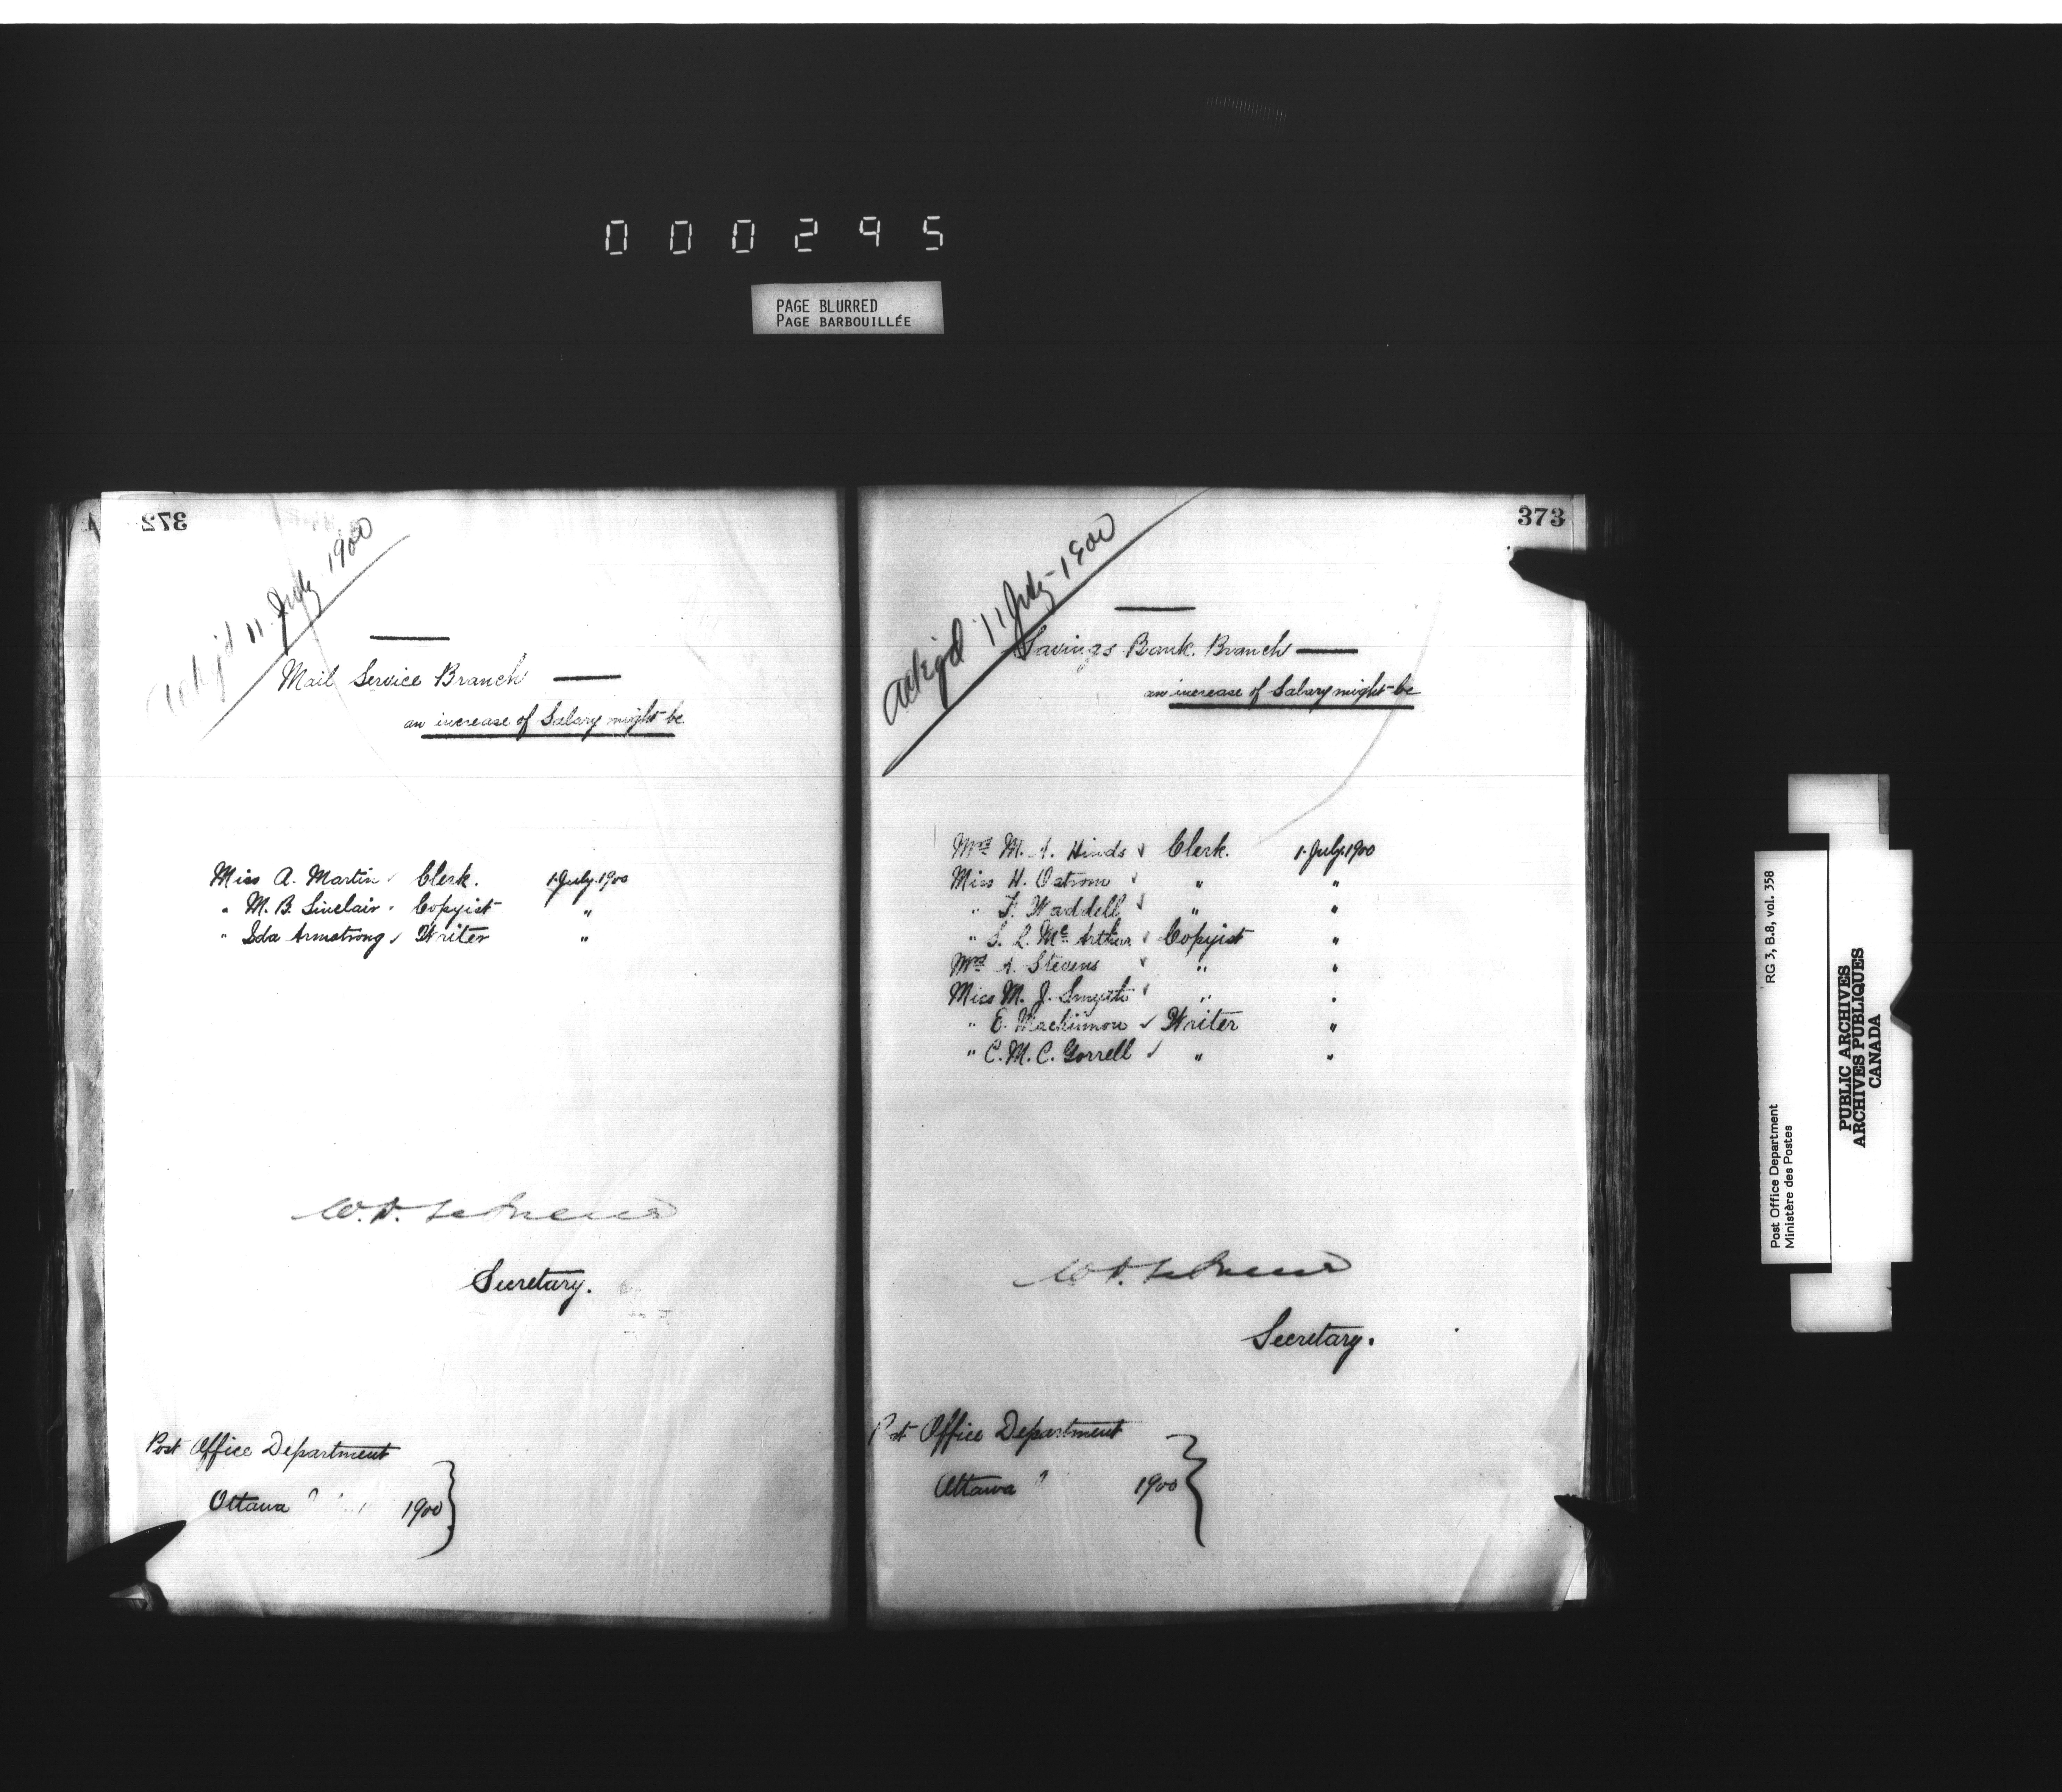 000295
PAGE BLURRED
PAGE BARBOUILLÉE
372
11 July 1900
Mail Service Branch
an increase of Salary might be
Miss A. Martin ✓ Clerk. 1 July 1900
" M. B. Sinclair ✓ Copyist "
" Ida Armstrong ✓ Writer "
Secretary.
Post Office Department
Ottawa 1900
373
11 July 1900
Savings Bank Branch
an increase of Salary might be
Mrs M. A. Hinds ✓ Clerk. 1 July 1900
Miss H. Ostrom ✓ " "
" F. Waddell ✓ " "
" S. L. McArthur ✓ Copyist "
Mrs A. Stevens ✓ " "
Miss M. J. Smyth ✓ " "
" E. Mackinnon ✓ Writer "
" C. M. C. Gorrell ✓ " "
Secretary.
Post Office Department
Ottawa 1900
Post Office Department
Ministère des Postes
RG 3, B.8, vol. 358
PUBLIC ARCHIVES
ARCHIVES PUBLIQUES
CANADA